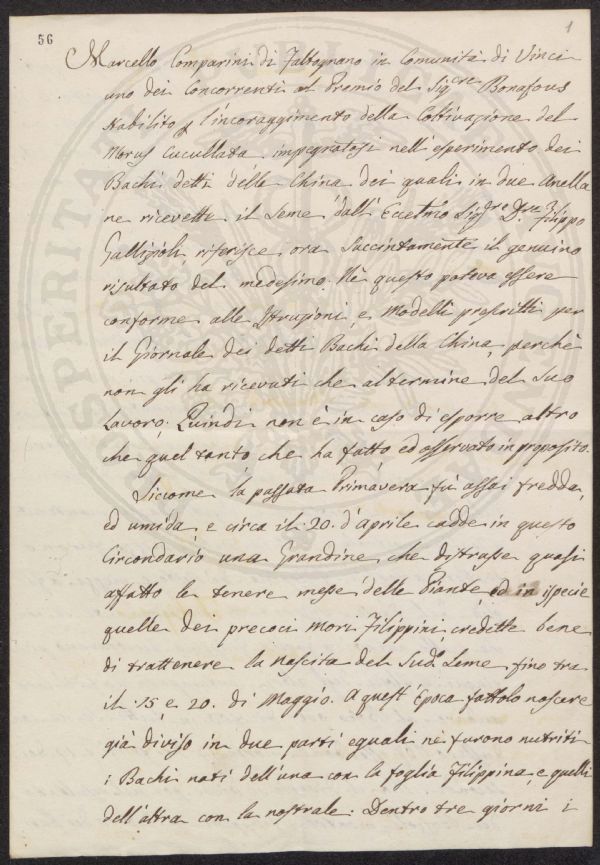 56
1
Marcello Comparini di Faltognano in Comunità di Vinci
uno dei Concorrenti al Premio del Sig.re Bonafous
stabilito p l'incoraggimento della Coltivazione del
Morus Cucullata, impegnatosi nell'esperimento dei
Bachi detti della China dei quali in due Anella
ne ricevette il Seme dall' Eccel͞mo Sig.re D.re Filippo
Gallizioli, riferisce ora succintamente il genuino
risultato del medesimo. Nè questo poteva essere
conforme alle Istruzioni, e Modelli prescritti per
il Giornale dei detti Bachi della China, perchè
non gli ha ricevuti che al termine del Suo
Lavoro; Quindi non è in caso di esporre altro
che quel tanto che ha fatto, ed osservato in proposito.
Siccome la passata Primavera fù assai fredda,
ed umida, e circa il 20. d'aprile cadde in questo
Circondario una Grandine che distrusse quasi
affatto le tenere messe delle Piante, ed in ispecie
quelle dei precoci Mori Filippini credette bene
di trattenere la nascita del Sud.o Seme fino tra
il 15 e 20. di Maggio. A quest'Epoca fattolo nascere
già diviso in due parti eguali nè furono nutriti
i Bachi nati dell'una con la foglia Filippina, e quelli
dell'altra con la nostrale. Dentro tre giorni i
SPERITAS